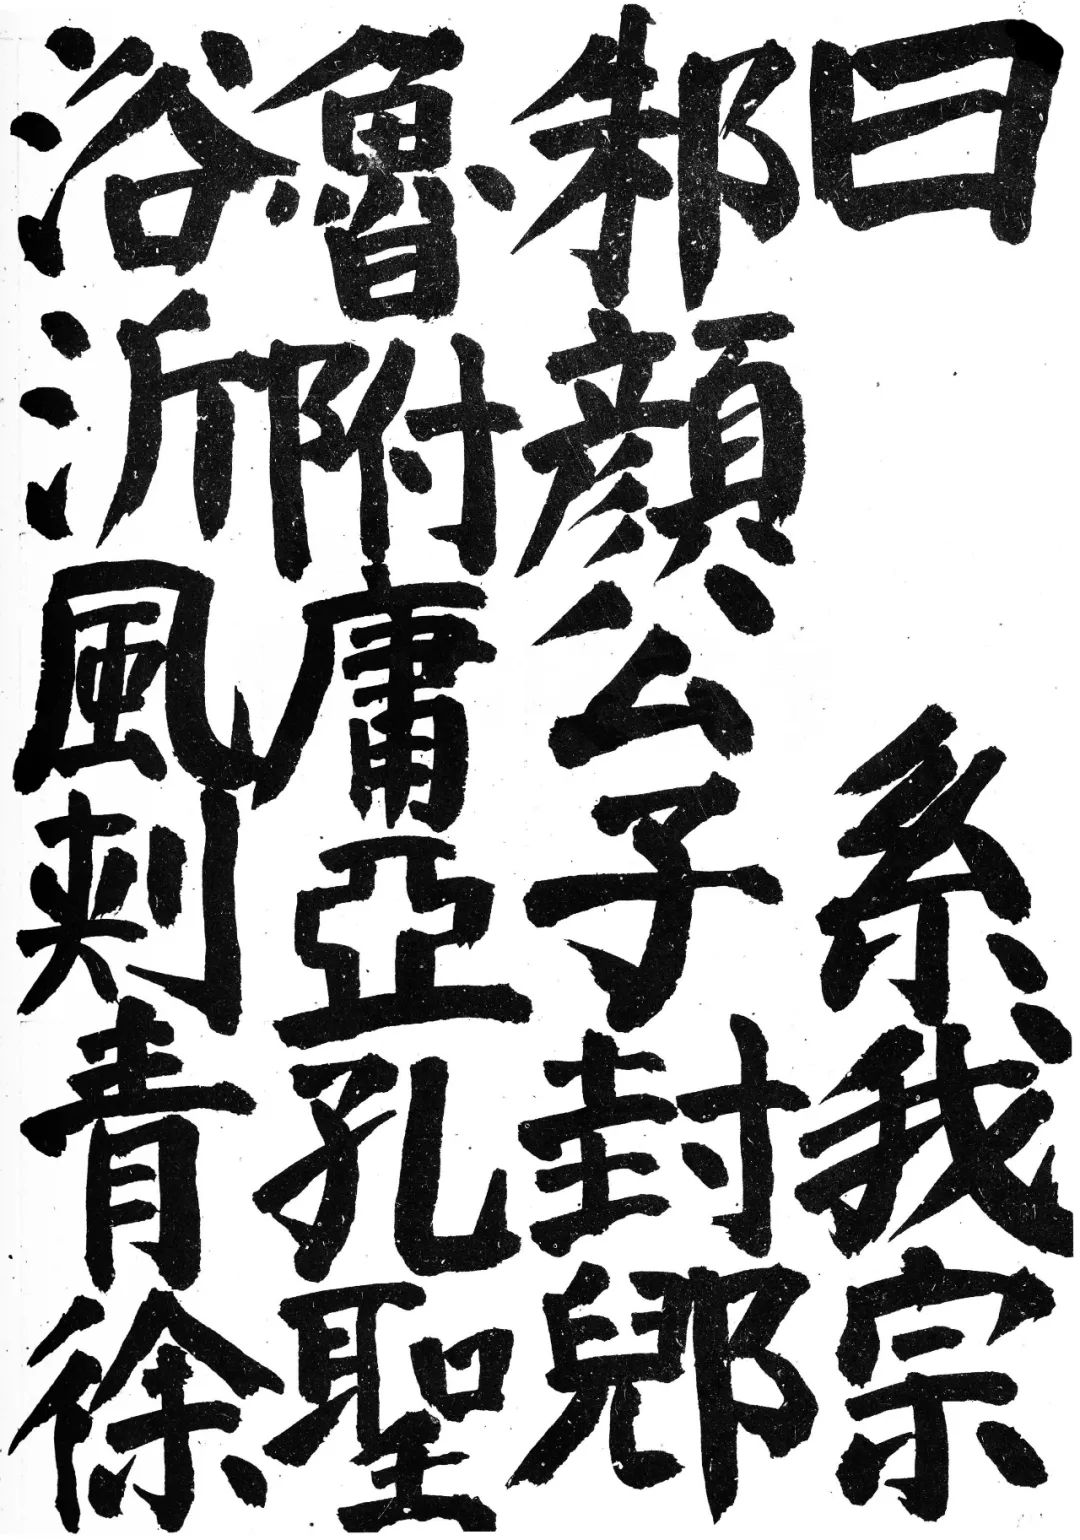 曰系我宗
邾顏公子封郳
魯附庸亞孔聖
浴沂風刺青徐